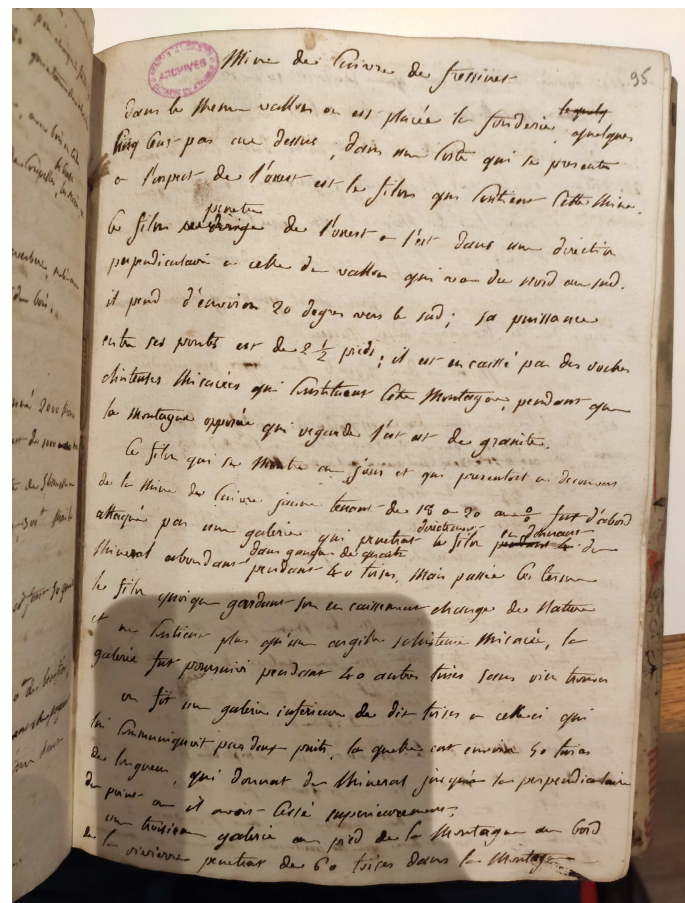 Mine de Cuivre de fressinet
95.
ARCHIVES
dans le meme vallon ou est placée la fonderie, quelques
cinq cent pas au dessus, dans une Coste qui se presente
a l'aspect de l'ouest est le filon qui Contient Cette Mine.
le filon penetre de l'ouest a l'est dans une direction
perpendiculaire a celle du vallon qui va du nord au sud.
il pend d'environ 20 degres vers le sud; sa puissance
entre ses pontes est de 2 1/2 pieds; il est encaissé par des roches
chisteuses Micacées qui Constituent Cette Montagne, pendant que
la montagne opposée qui regarde l'est est de granite.
Ce filon qui se Montre au jour et qui presentoit a decouvert
de la Mine de Cuivre jaune tenant de 18 a 20 au % fut d'abord
attaqué par une galerie qui penetrat le filon en donnant du
Mineral abondant dans gangue de quartz
pendant 40 toises, Mais passée Ce terme
le filon quoique gardant son encaissement change de Nature
et ne Contient plus qu'une argile schisteuse Micacée, la
galerie fut poursuivi pendant 40 autres toises sans rien trouver
on fit une galerie inferieure de dix toises a celle ci qui
lui Communiquoit par deux puits, la quelle eut environ 50 toises
de longueur, qui donnat du Mineral jusqu'a la perpendiculaire
du point ou il avoit Cessé superieurement.
une troisieme galerie au pied de la Montagne au bord
de la rivierre penetrat de 60 toises dans la Montagne